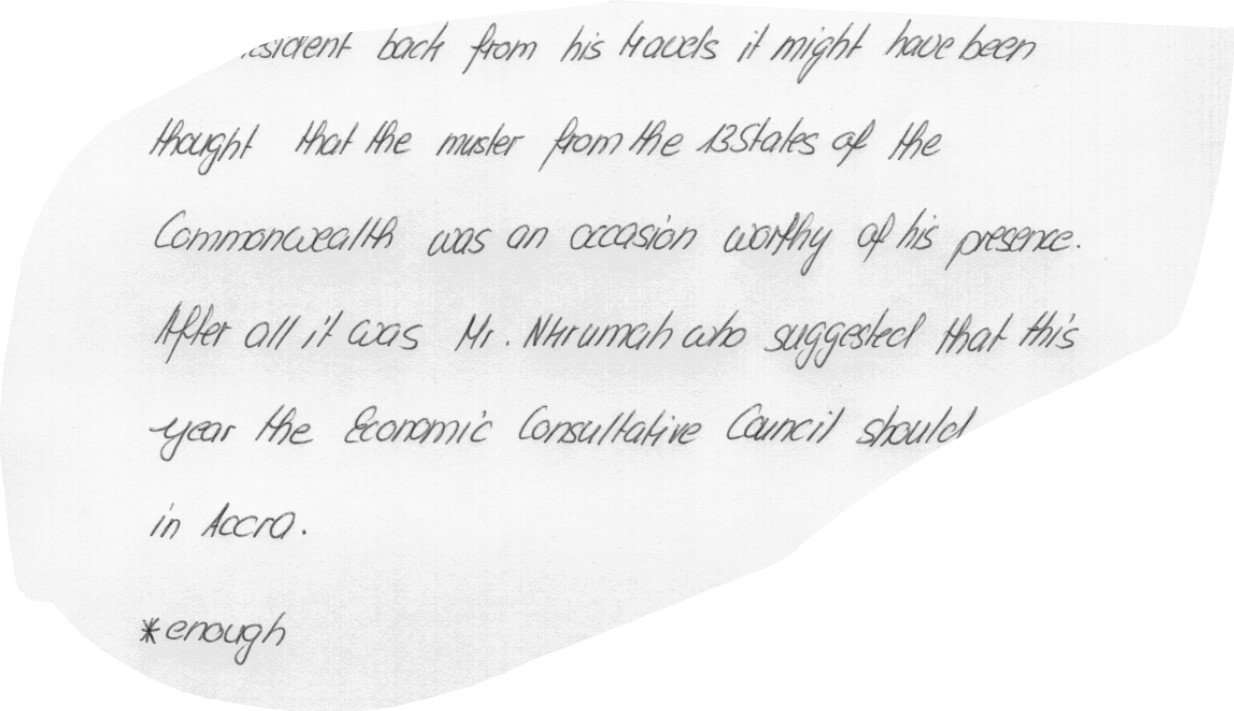 back from his travels it might have been
thought that the muster from the 13 States of the
Commonwealth was an occasion worthy of his presence.
After all it was Mr. Nkrumah who suggested that this
year the Economic Consultative Council should
in Accra.
*enough